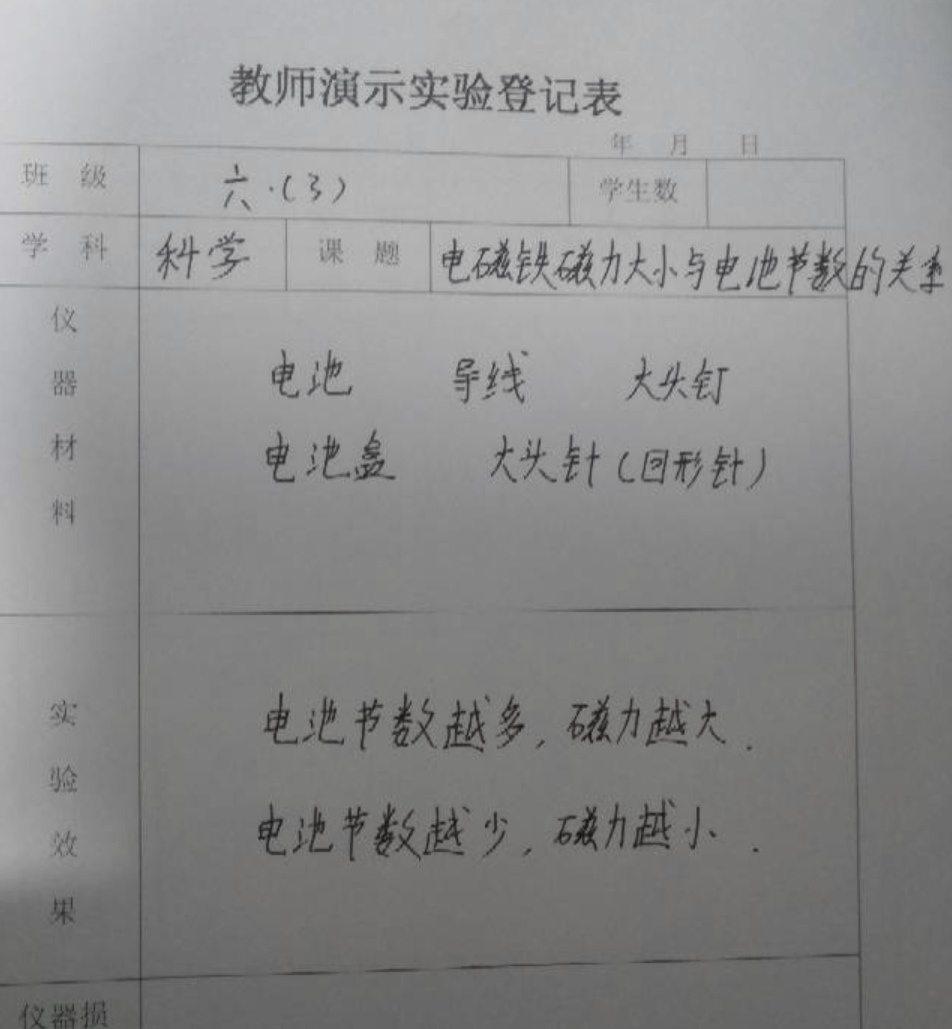 教师演示实验登记表
年 月 日
班 级 六.(3) 学生数
学 科 科学 课 题 电磁铁磁力大小与电池节数的关系
仪器材料
电池 导线 大头钉
电池盒 大头针(回形针)
实验效果
电池节数越多,磁力越大.
电池节数越少,磁力越小.
仪器损